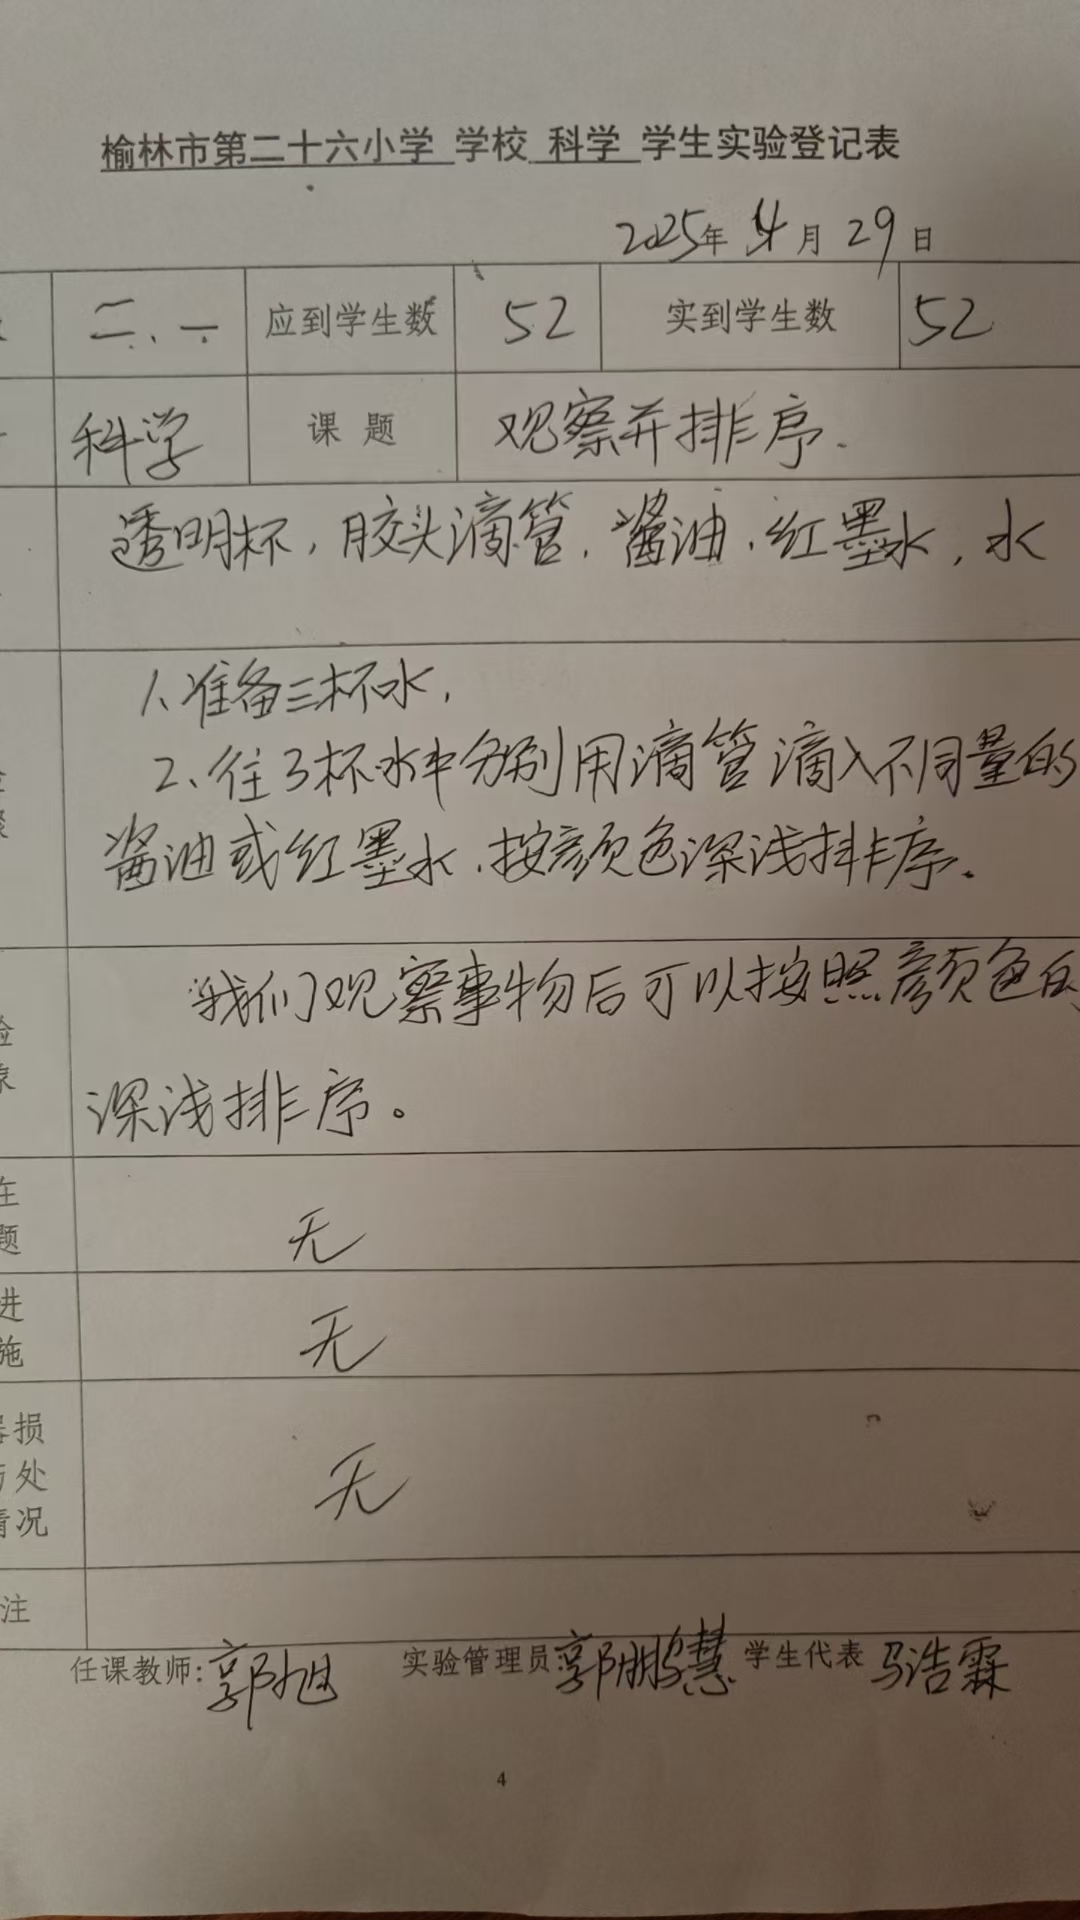 榆林市第二十六小学 学校 科学 学生实验登记表
2025年 4月 29日
二.一 应到学生数 52 实到学生数 52
科学 课 题 观察并排序.
透明杯, 胶头滴管, 酱油, 红墨水, 水
1、准备三杯水,
2、往3杯水中分别用滴管滴入不同量的
酱油或红墨水, 按颜色深浅排序.
我们观察事物后可以按照颜色的
验
深浅排序。
在
题 无
进
施 无
损
处 无
情况
注
任课教师:郭旭 实验管理员:郭鹏慧 学生代表 马浩霖
4